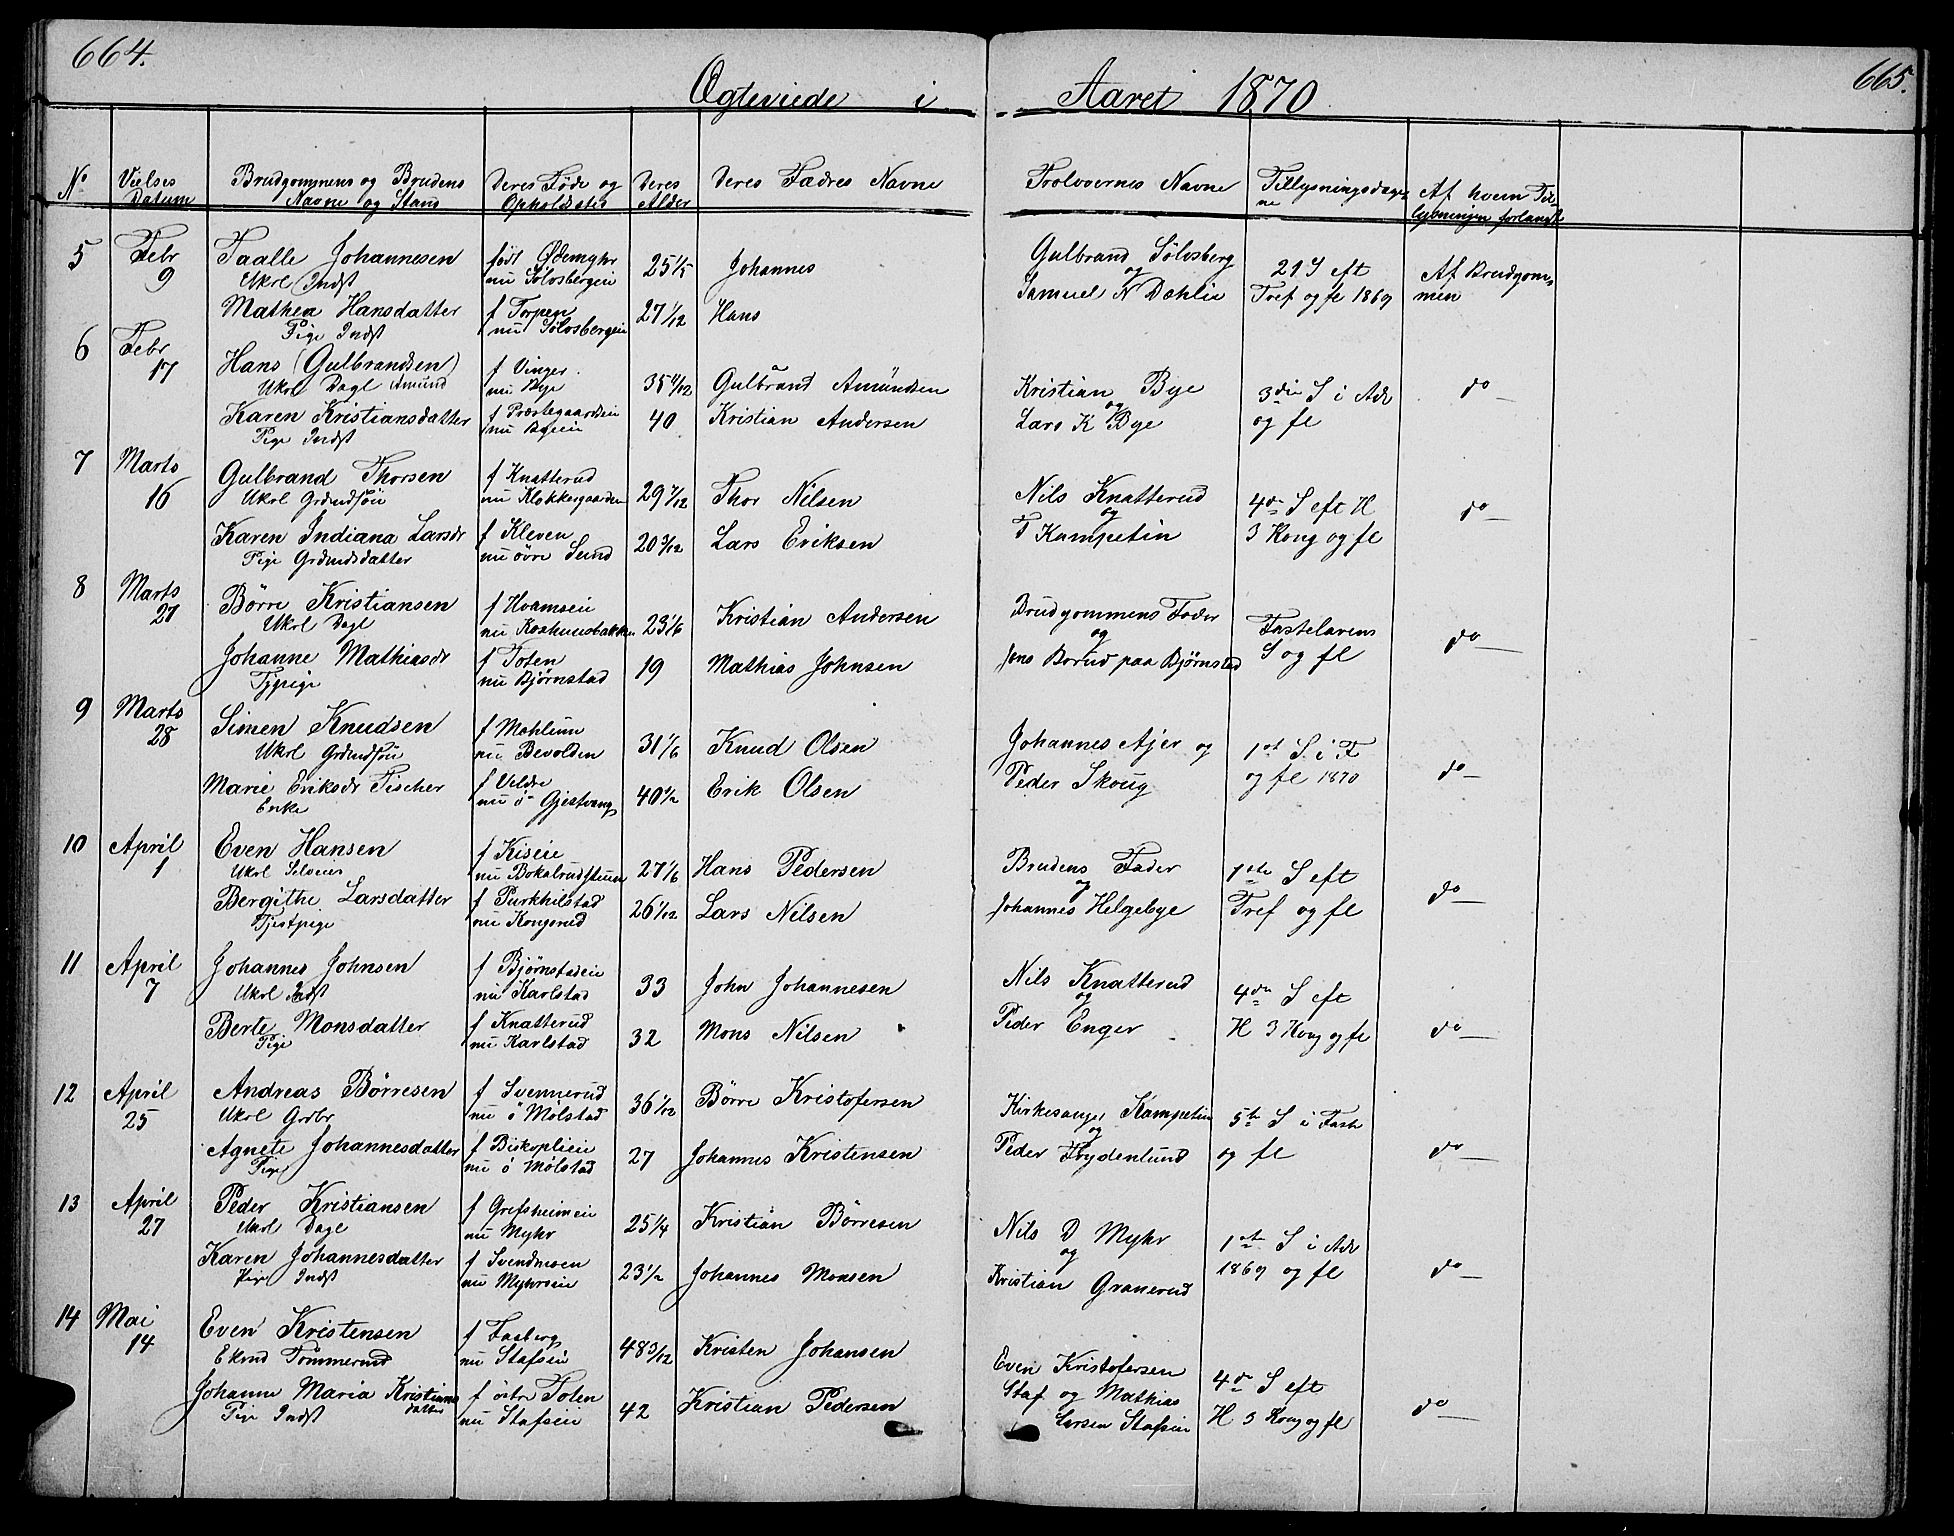 664.
665.
Ægteviede i Aaret 1870
No
Vielses Datum
Brudgommens og Brudens Navne og Stand
Deres Føde og Opholdssted
Deres Alder
Deres Fædres Navne
Trolovernes Navne
Tillysningsdagene
Af hvem Tillysningen forlangt
5 Febr 9
Taalle Johannesen født Ødemyhr 25 1/5 Johannes
Ukrl Indst nu Sølvsbergeie
Mathea Hansdatter f Torpen 27 1/12 Hans
Pige Indst nu Sølvsbergeie
Gulbrand Sølvsberg og Samuel N Dahlie
21 S eft Tref og fl 1869
Af Brudgommen
6 Febr 17
Hans (Gulbrandsen) f Vinger 35 4/12 Gulbrand Amundsen
Ukrl Dagl Amund nu Bye
Karen Kristiansdatter f Præstegaardseie 40 Kristian Andersen
Pige Indst nu Byeeie
Kristian Bye og Lars K Bye
3die S i Adv og fl
do
7 Marts 16
Gulbrand Thorsen f Knatterud 29 7/12 Thor Nilsen
Ukrl Grdmdsøn nu Klokkergaarden
Karen Indiana Larsdr f Kleven 20 3/12 Lars Eriksen
Pige Grdmdsdatter nu øvre Sund
Nils Knatterud og T Kampetin
4de S eft H 3 Kong og fl
do
8 Marts 27
Børre Kristiansen f Hvamseie 23 1/6 Kristian Andersen
Ukrl Dagl
Johanne Mathiasdr f Toten 19 Mathias Johnsen
Tjpige nu Bjørnstad
Brudgommens Fader og Jens Borud paa Bjørnstad
Fastelavens S og fl
do
9 Marts 28
Simen Knudsen f Mæhlum 31 1/6 Knud Olsen
Ukrl Grdmdsøn nu Bevolden
Marie Eriksdr Fischer f Veldre 40 1/2 Erik Olsen
Enke nu ø Gjestvang
Johannes Ajer og Peder Skoug
1st S i F og fl 1870
do
10 April 1
Even Hansen f Kiseie 27 1/6 Hans Pedersen
Ukrl Selveier nu Bokalrudstuen
Bergithe Larsdatter f Purkhilstad 26 1/12 Lars Nilsen
Tjestpige nu Kongsrud
Brudens Fader og Johannes Helgebye
1ste S eft Tref og fl
do
11 April 7
Johannes Johnsen f Bjørnstadeie 33 John Johannesen
Ukrl Indst nu Karlstad
Berte Monsdatter f Knatterud 32 Mons Nilsen
Pige nu Karlstad
Nils Knatterud og Peder Enger
4de S eft H 3 Kong og fl
do
12 April 25
Andreas Børresen f Svennerud 36 1/12 Børre Kristofersen
Ukrl Grdbr nu ö Mölstad
Agnete Johannesdatter f Biskoplieie 27 Johannes Kristensen
Pige nu ö Mölstad
Kirkesanger Kampetin og Peder Frydenlund
5te S i Faste og fl
do
13 April 27
Peder Kristiansen f Grefsheimeie 25 1/4 Kristian Börresen
Ukrl Dagl nu Myhr
Karen Johannesdatter f Svendmoen 23 1/2 Johannes Monsen
Pige Indst nu Myhreeie
Nils D Myhr og Kristian Granerud
1ste S i Adv 1869 og fl
do
14 Mai 14
Even Kristensen f Fasberg 48 3/12 Kristen Johansen
Ekmd Tömmermd nu Stafseie
Johanne Maria Kristiansdatter f østr Toten 42 Kristian Pedersen
Pige Indst nu Stafseie
Even Kristofersen Staf og Mathias Larsen Stafseie
4de S eft H 3 Kong og fl
do